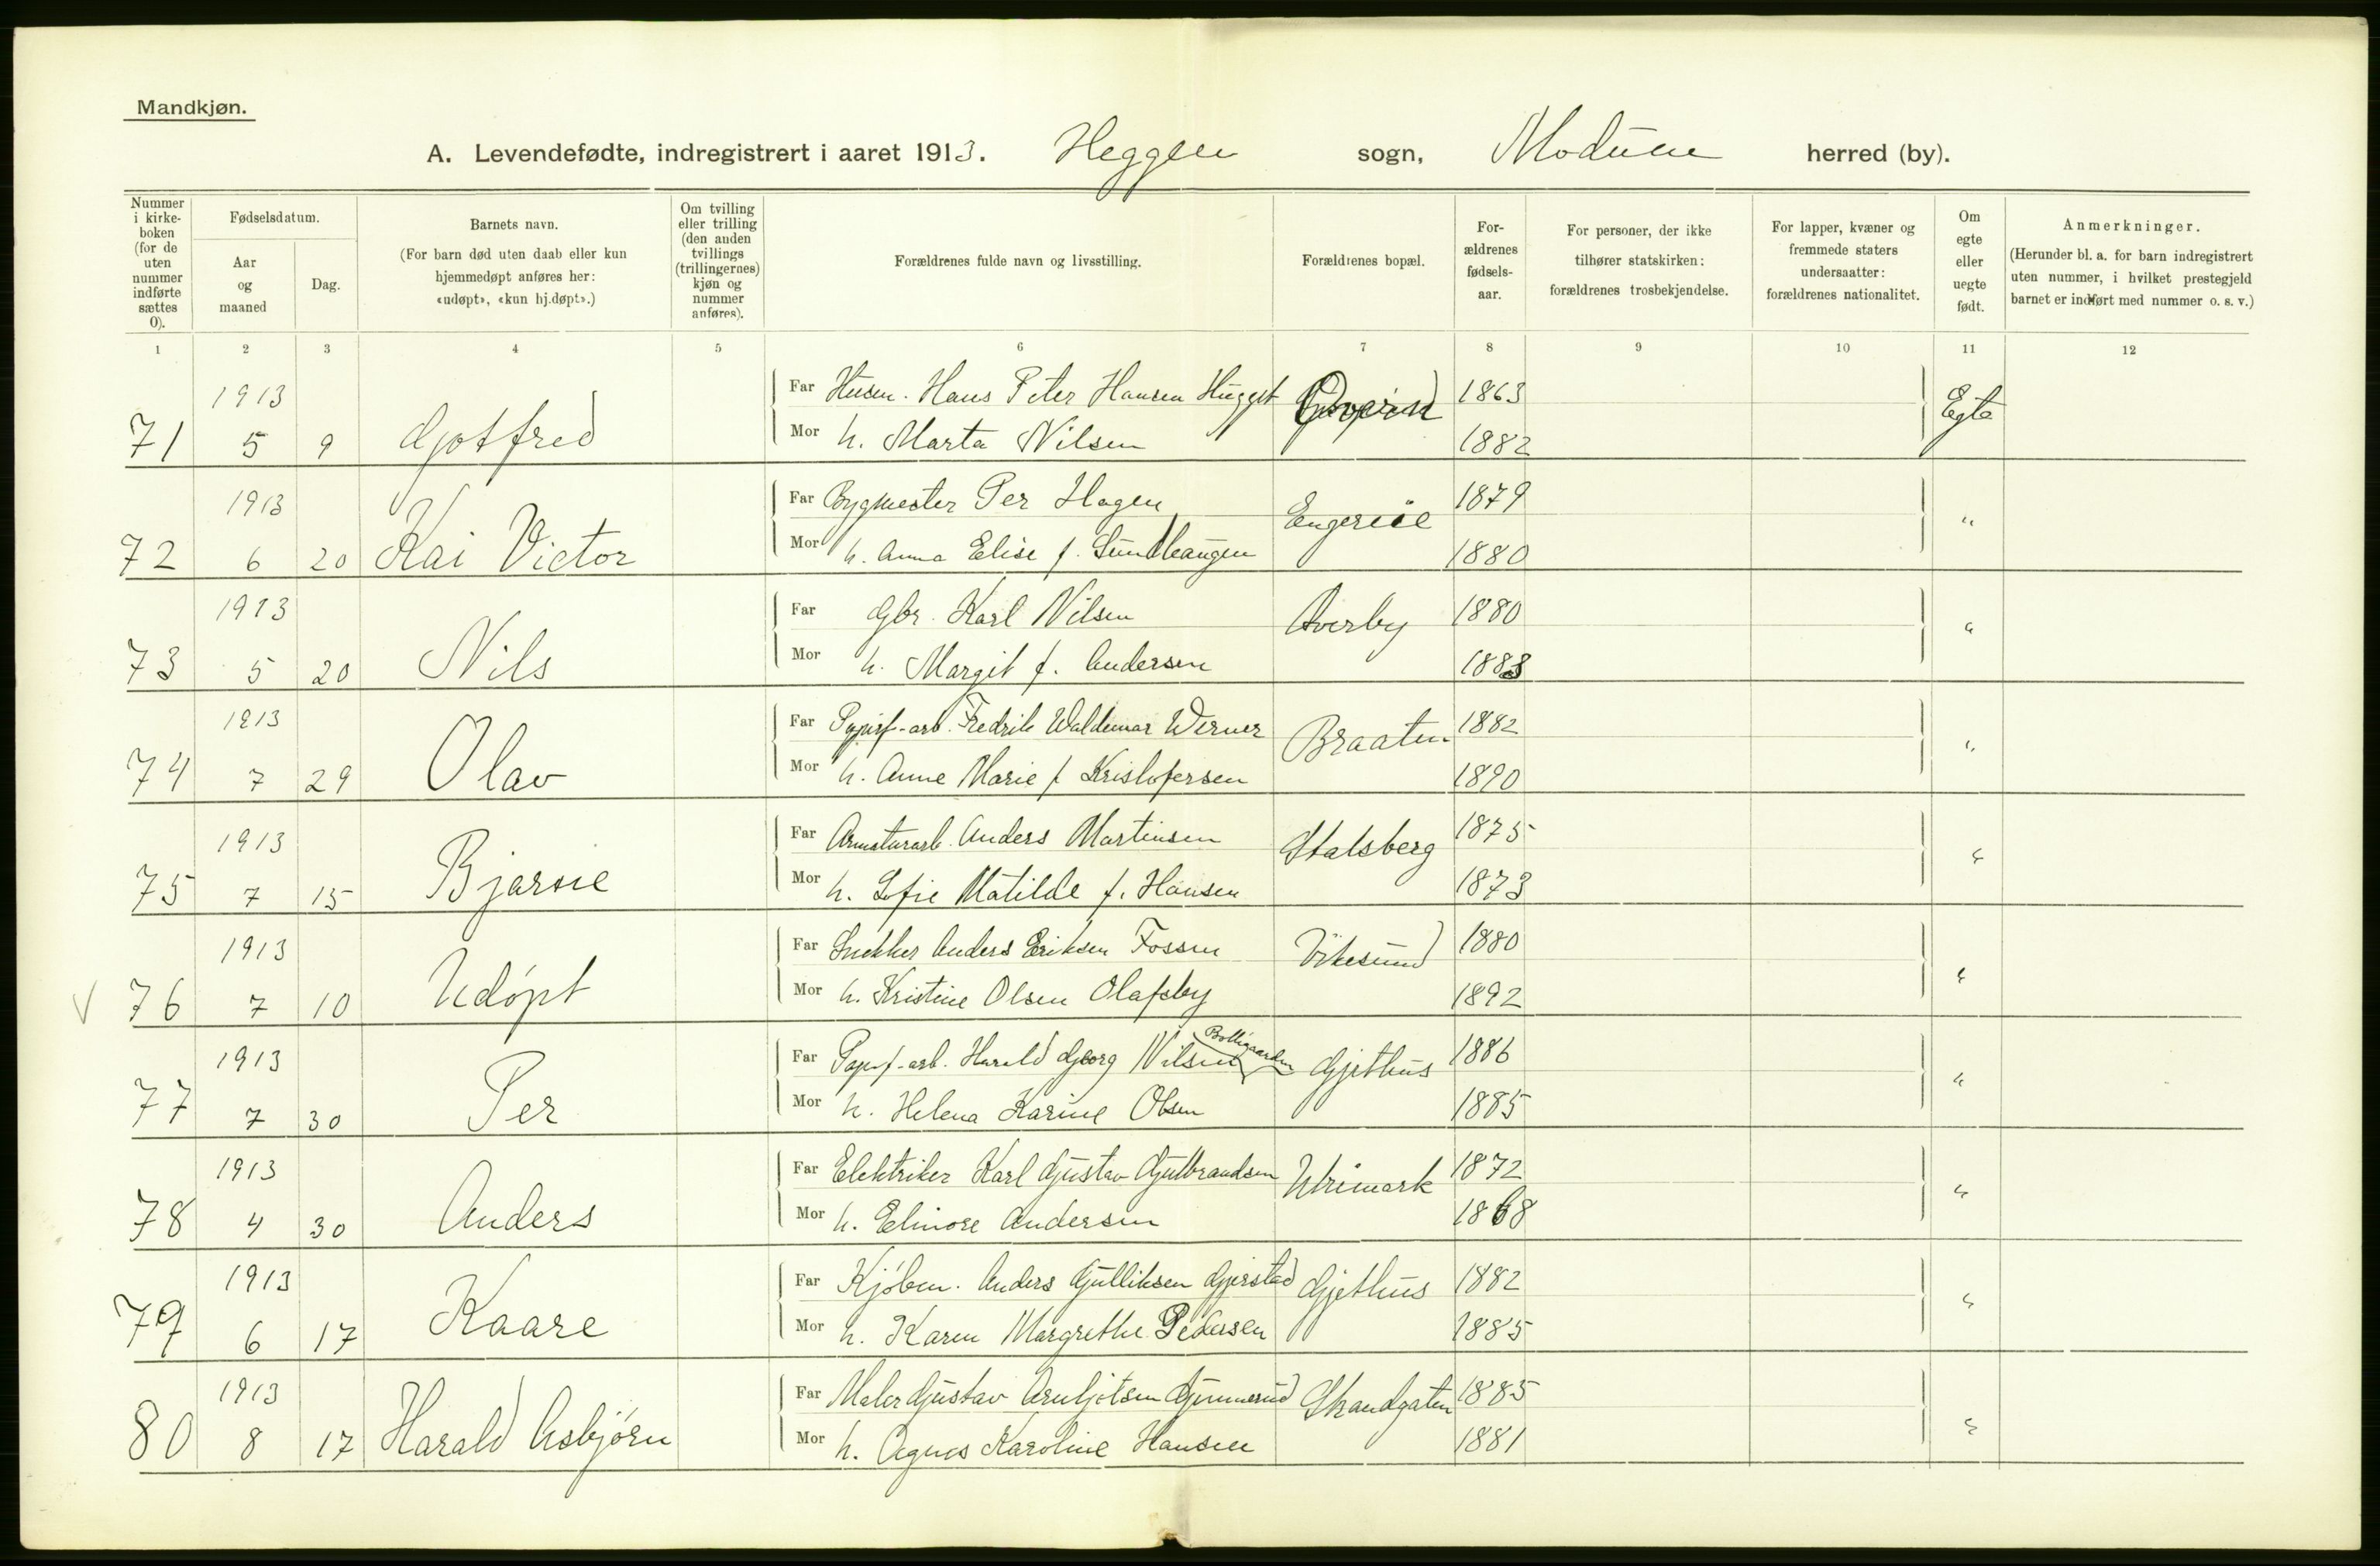 Mandkjøn.
A. Levendefødte, indregistrert i aaret 1913. Heggen sogn, Modum herred (by).
Nummer i kirke-boken (for de uten nummer indførte sættes 0).
Fødselsdatum.
Aar og maaned
Dag.
Barnets navn.
(For barn død uten daab eller kun hjemmedøpt anføres her: «udøpt», «kun hj.døpt».)
Om tvilling eller trilling (den anden tvillings (trillingernes) kjøn og nummer anføres).
Forældrenes fulde navn og livsstilling.
Forældrenes bopæl.
For-ældrenes fødsels-aar.
For personer, der ikke tilhører statskirken: forældrenes trosbekjendelse.
For lapper, kvæner og fremmede staters undersaatter: forældrenes nationalitet.
Om egte eller uegte født.
Anmerkninger.
(Herunder bl. a. for barn indregistrert uten nummer, i hvilket prestegjeld barnet er indført med nummer o. s. v.)
1 2 3 4 5 6 7 8 9 10 11 12
1913 Far Husm. Hans Peter Hansen 1863
71 5 9 Gotfred Mor h. Marta Nilsen 1882 Egte
1913 Far Bygmester Per Hagen 1879
72 6 20 Kai Victor Mor h. Anna Elise f. Sundhaugen 1880 "
1913 Far Gbr. Karl Nilsen Averby 1880
73 5 20 Nils Mor h. Margit f. Andersen 1888 "
1913 Far Papirf-arb. Fredrik Waldemar Werner Braaten 1882
74 7 29 Olav Mor h. Anne Marie f Kristofersen 1890 "
1913 Far Armaturarb. Anders Martinsen Stalsberg 1875
75 7 15 Bjarne Mor h. Sofie Matilde f. Hansen 1873 "
1913 Far Snekker Anders Eriksen Fossen Vikesund 1880
V 76 7 10 Udøpt Mor h. Kristine Olsen Olafsby 1892 "
1913 Far Papirf-arb. Harald Georg Nilsen Bolliggaarden Gjethus 1886
77 7 30 Per Mor h. Helena Karine Olsen 1885 "
1913 Far Elektriker Karl Gustav Gulbrandsen 1872
78 4 30 Anders Mor h. Elinore Andersen 1868 "
1913 Far Kjøbm. Anders Gulliksen Gjerstad Gjethus 1882
79 6 17 Kaare Mor h. Karen Margrethe Pedersen 1885 "
1913 Far Maler Gustav Arnljotsen Gunnerud Strandgaten 1885
80 8 17 Harald Asbjørn Mor h. Agnes Karoline Hansen 1881 "